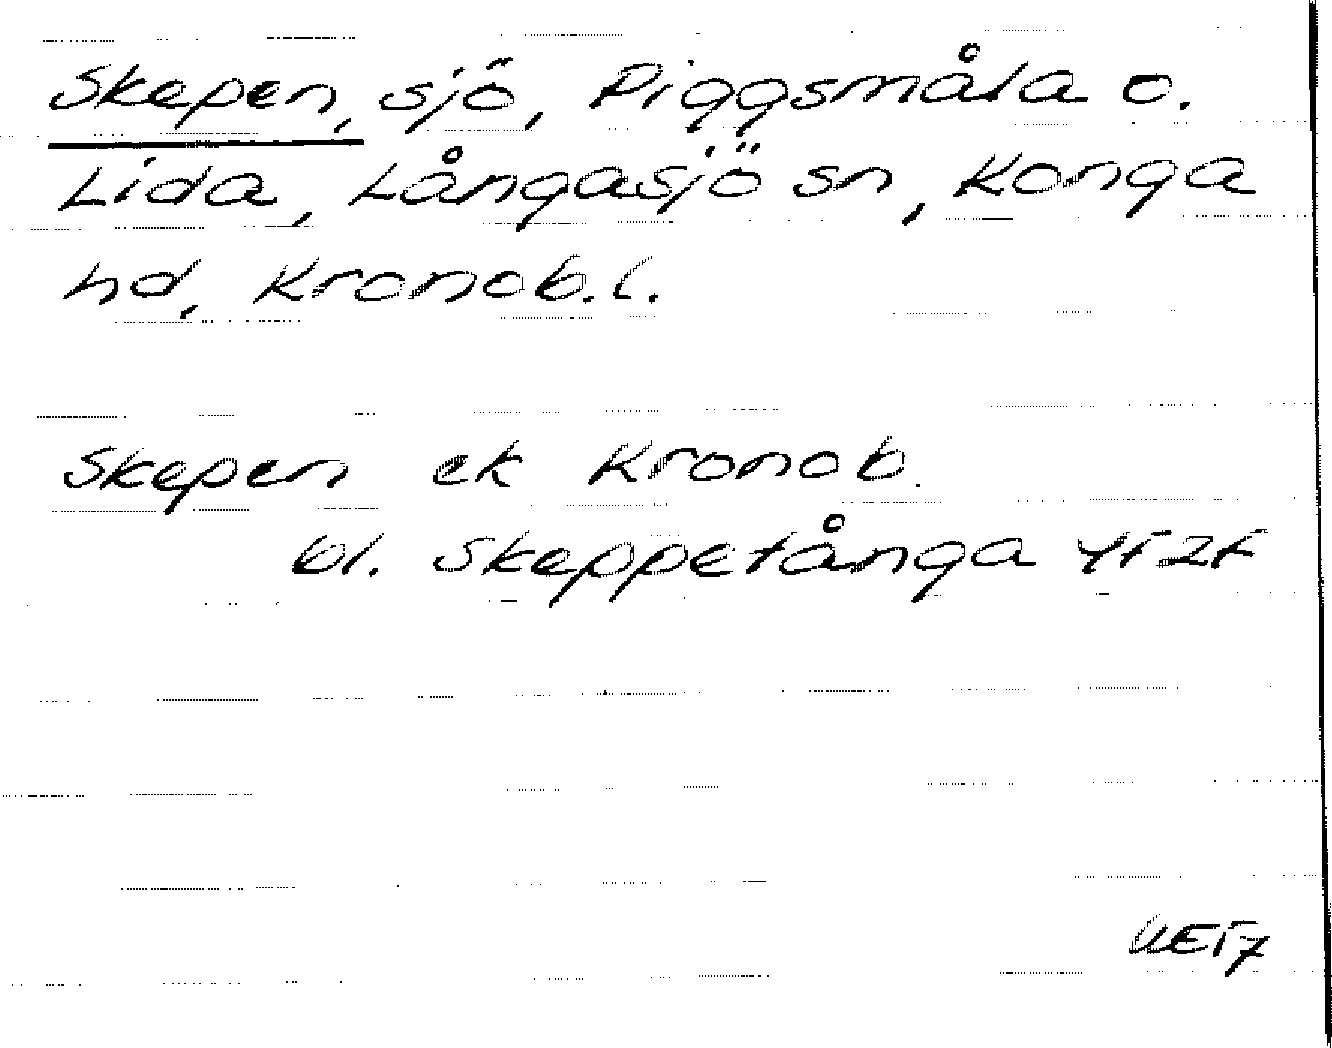 Skepen, sjö, Piggsmåla o.
Lida, Långasjö sn, Konga
hd, Kronob.l.
Skepen ek Kronob.
bl. Skeppetånga 4F2f